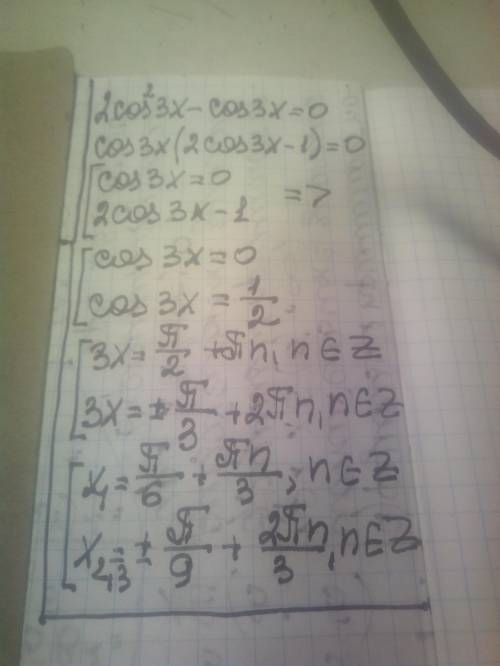 2cos²3x - cos3x = 0
cos3x(2cos3x - 1) = 0
[cos3x = 0
[2cos3x - 1 =>
[cos3x = 0
[cos3x = 1/2
[3x = π/2 + πn, n ∈ Z
[3x = ±π/3 + 2πn, n ∈ Z
[x₁ = π/6 + πn/3, n ∈ Z
[x₂,₃ = ±π/9 + 2πn/3, n ∈ Z